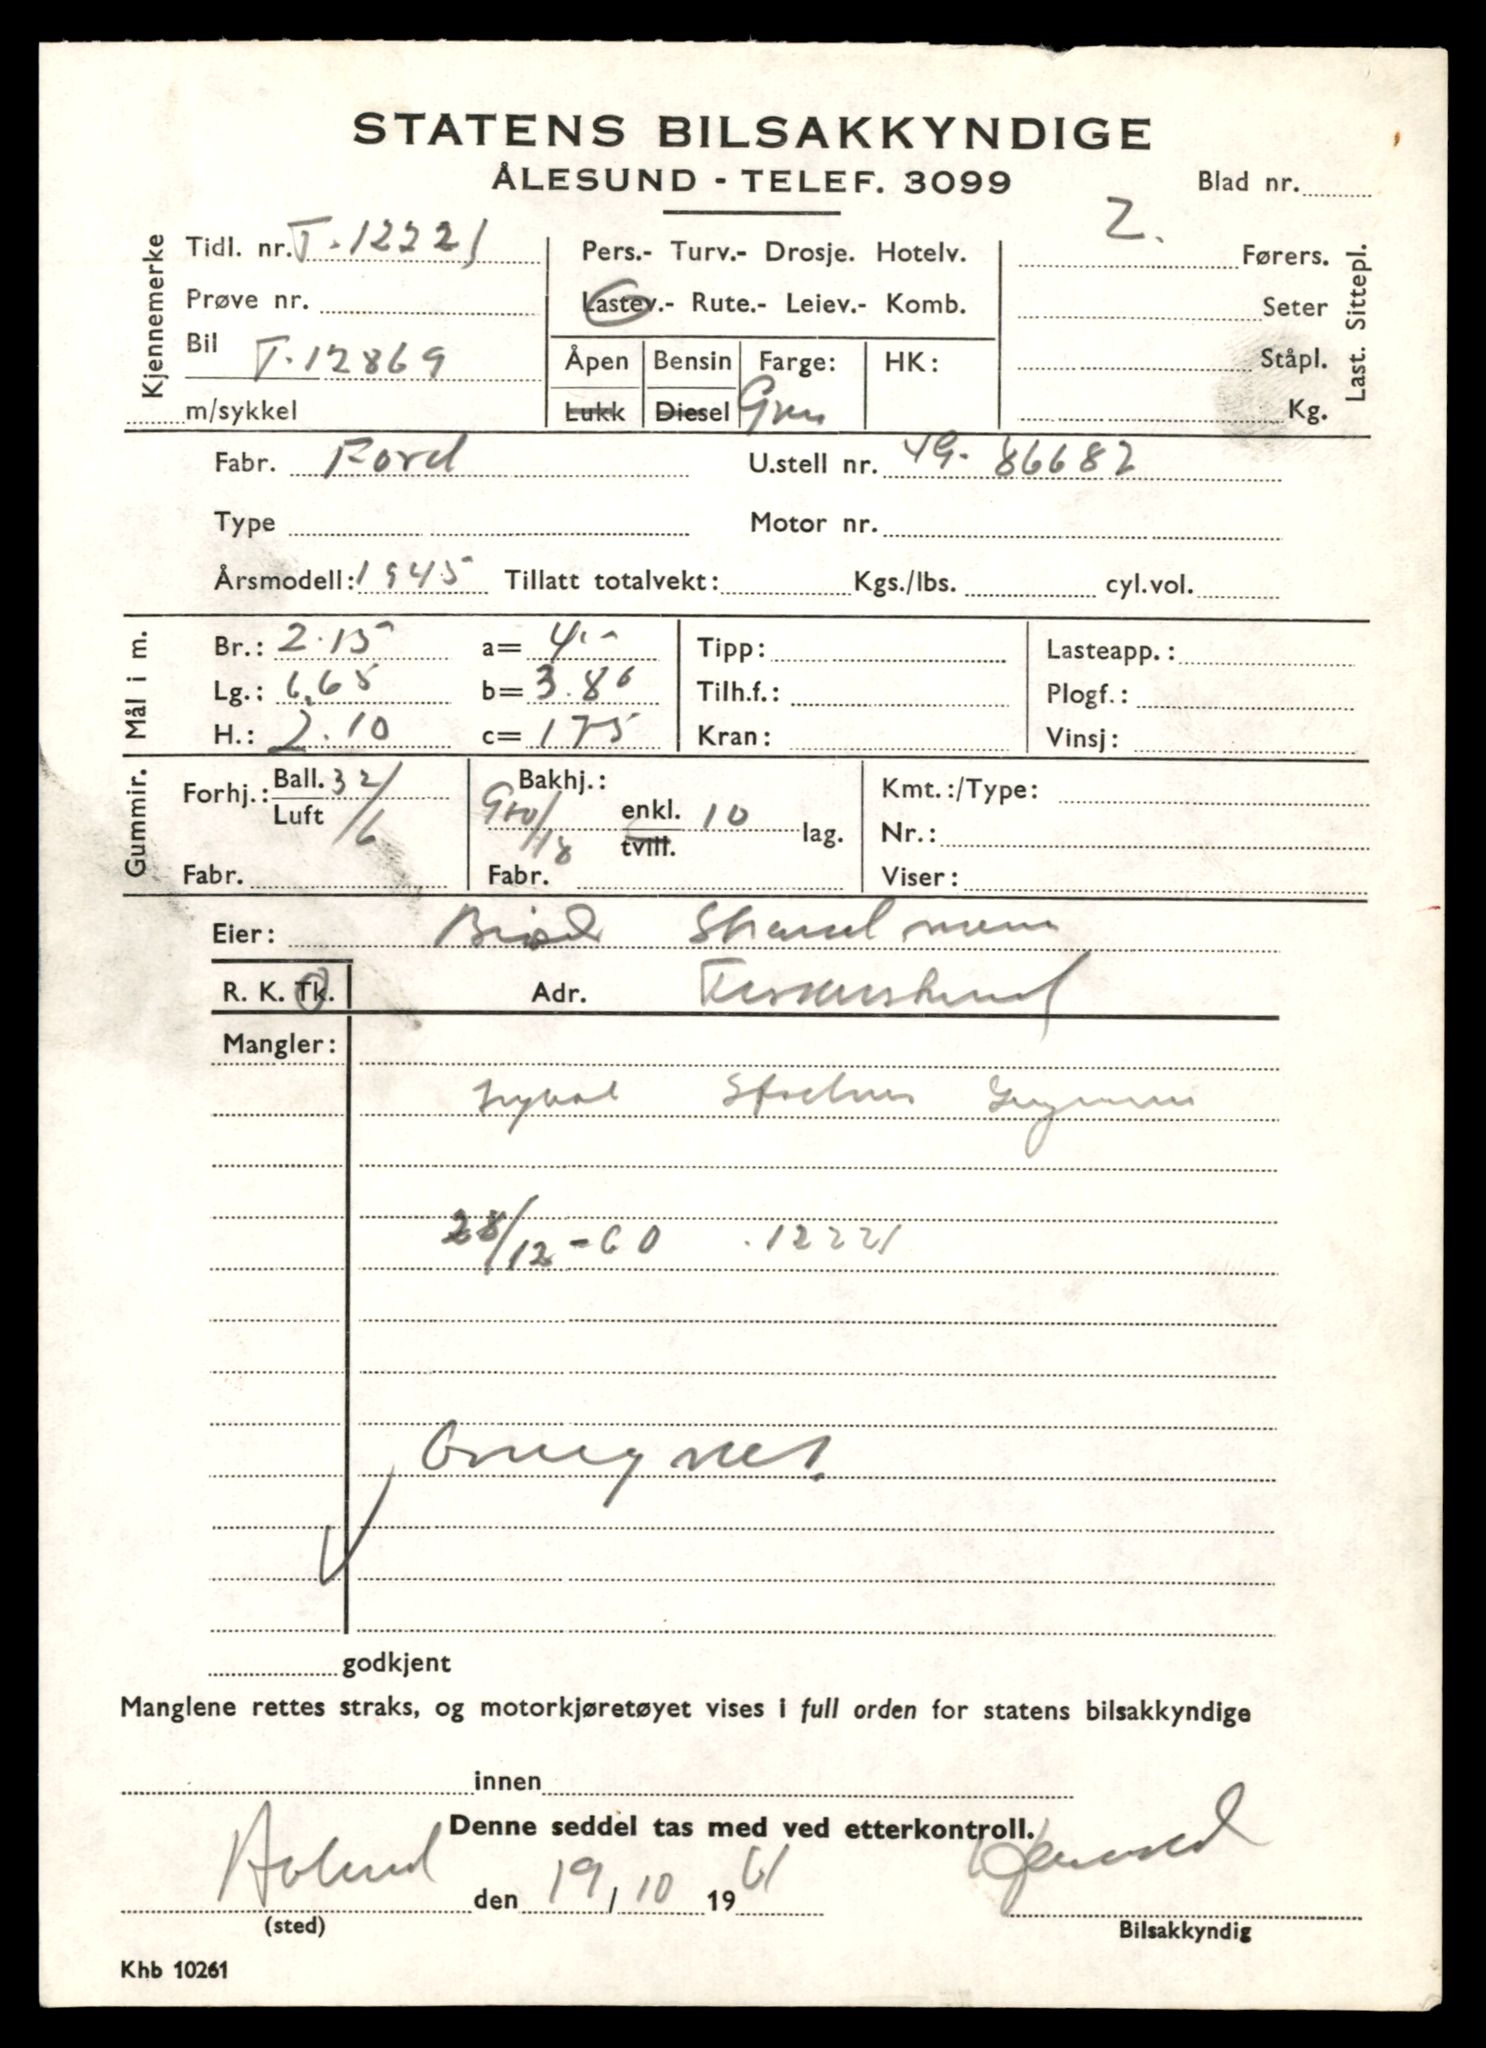 STATENS BILSAKKYNDIGE
ÅLESUND - TELEF. 3099
Blad nr.
Kjennemerke
Tidl. nr. T-12221
Prøve nr.
Bil T-12869
m/sykkel
Pers.- Turv.- Drosje. Hotelv.
Lastev.- Rute.- Leiev.- Komb.
Åpen Bensin Farge: HK:
Lukk Diesel
2.
Førers.
Seter
Ståpl.
Kg.
Last. Sittepl.
Fabr. Ford U.stell nr. 79- 86682
Type Motor nr.
Årsmodell: 1945 Tillatt totalvekt: Kgs./lbs. cyl.vol.
Mål i m.
Br.: 2.15 a= 4.- Tipp: Lasteapp.:
Lg.: 6.65 b= 3.86 Tilh.f.: Plogf.:
H.: 2.10 c= 175 Kran: Vinsj:
Gummir.
Forhj.: Ball. 32/6 Bakhj.: Kmt.:/Type:
Luft enkl. 10 lag. Nr.:
tvill.
Fabr. Fabr. Viser:
Eier:
R. K. Tk. Adr.
Mangler:
28/12-60 .12221
Omregnet.
godkjent
Manglene rettes straks, og motorkjøretøyet vises i full orden for statens bilsakkyndige
innen
Denne seddel tas med ved etterkontroll.
den 19/10 1961
(sted) Bilsakkyndig
Khb 10261